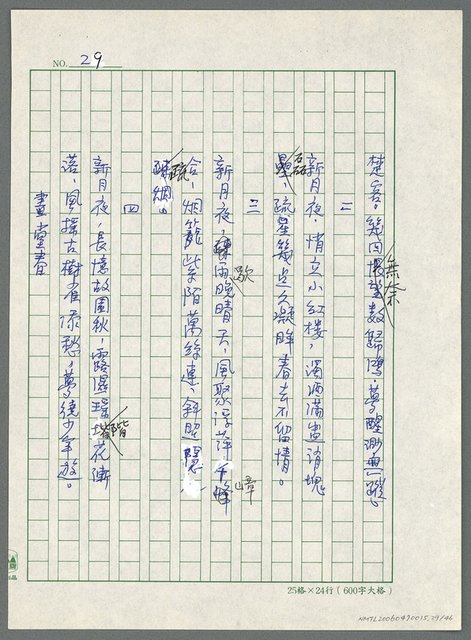 NO. 29
楚客。幾回
無奈
數歸鴻，夢醒渺無蹤。
二
新月夜，情立小紅樓，濁酒滿盅消塊
磊
疏星幾點久凝眸，春去不留情。
三
新月夜，
歇
雨晚晴天，風聚浮萍千峰
嶂
合，烟籠紫陌萬絲連，斜照隱
疏
烟。
四
新月夜，長憶故園秋，露濕環堦花漸
階
落，風搖古樹雀添愁，夢繞少年遊。
畫堂春
25格×24行（600字大格）
NMTL20060470015,29/46